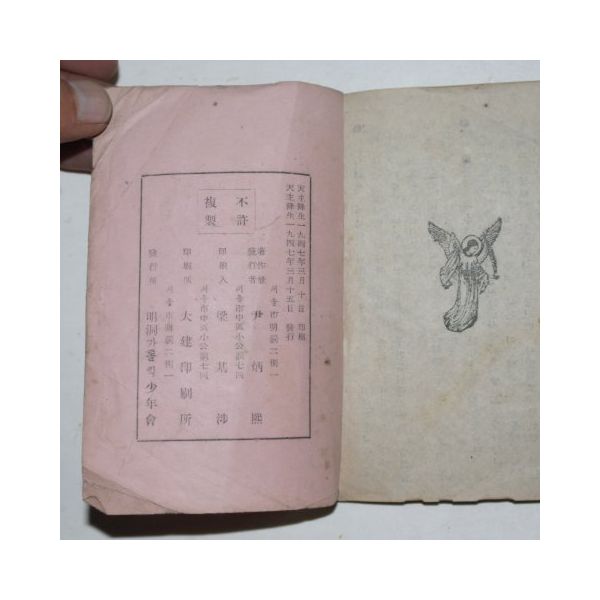 天主降生一九四七年三月十日 印刷
天主降生一九四七年三月十五日 發行
不許
複製
서울市明洞二街一
著作兼
發行者 尹炳熙
서울市中區小公洞七四
印刷人 梁基涉
서울市中區小公洞七四
印刷所 大建印刷所
서울市明洞二街一
發行所 明洞가톨릭少年會